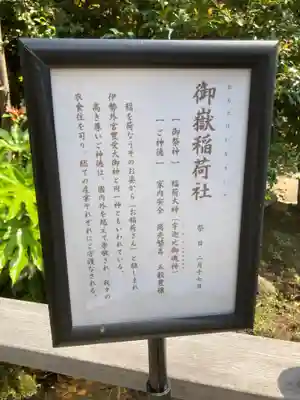 御嶽稲荷社
祭日　二月十七日
【御祭神】　稲荷大神（宇迦之御魂神）
【ご神徳】　家内安全　商売繁昌　五穀豊穣
稲を荷なうそのお姿から「お稲荷さん」と親しまれ
伊勢外宮豊受大御神と同一神ともいわれている。
高き尊いご神徳は、国内外を越えて崇敬され、我々の
衣食住を司り、総ての産業それぞれにご守護なされる。